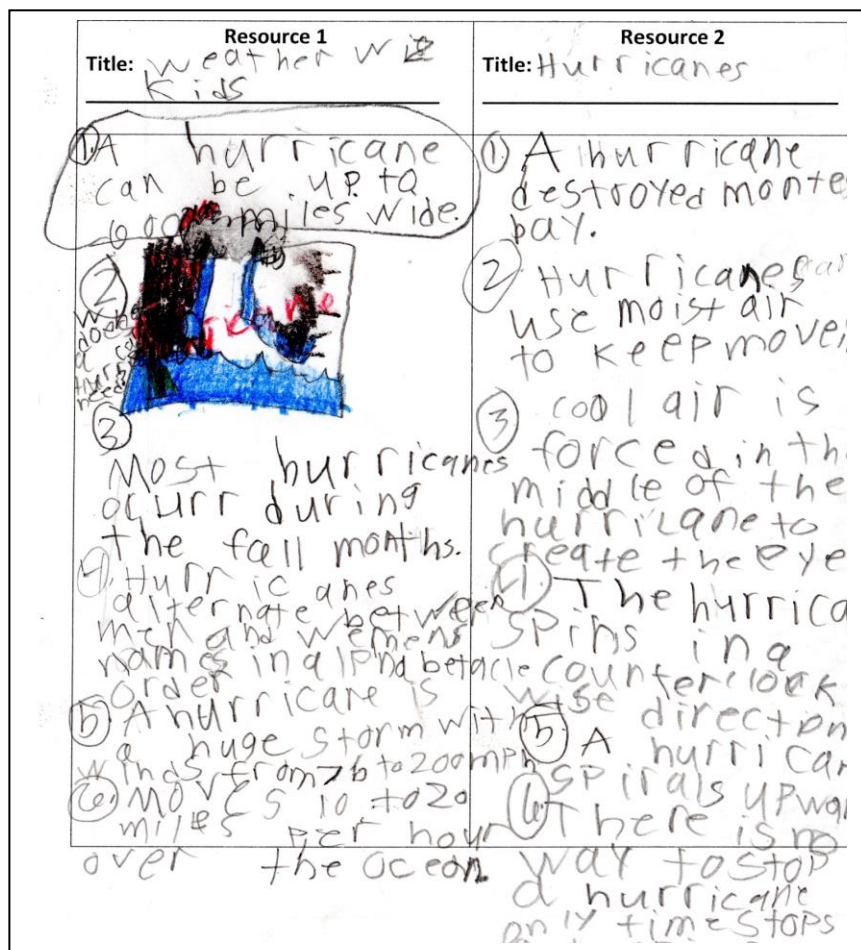 Resource 1
Title: Weather Wiz
Kids
1. A hurricane
can be up to
600 miles wide.
2
does
a
need?
3
Most hurricanes
ocurr during
the fall months.
4. Hurricanes
alternate between
men and wemens
names in alphabetacle
order
5 A hurricane is
a huge storm with
winds from 76 to 200 mph
6. Moves 10 to 20
miles per hour
over the ocean
Resource 2
Title: Hurricanes
1 A hurricane
destroyed monte
bay.
2 Hurricanes
use moist air
to keep movei
3 cool air is
forced in th
middle of the
hurricane to
create the eye
4 The hurrica
spins in a
counterclock
wise direction
5 A hurrican
spirals upwar
6 There is no
way to stop
a hurricane
only time stops